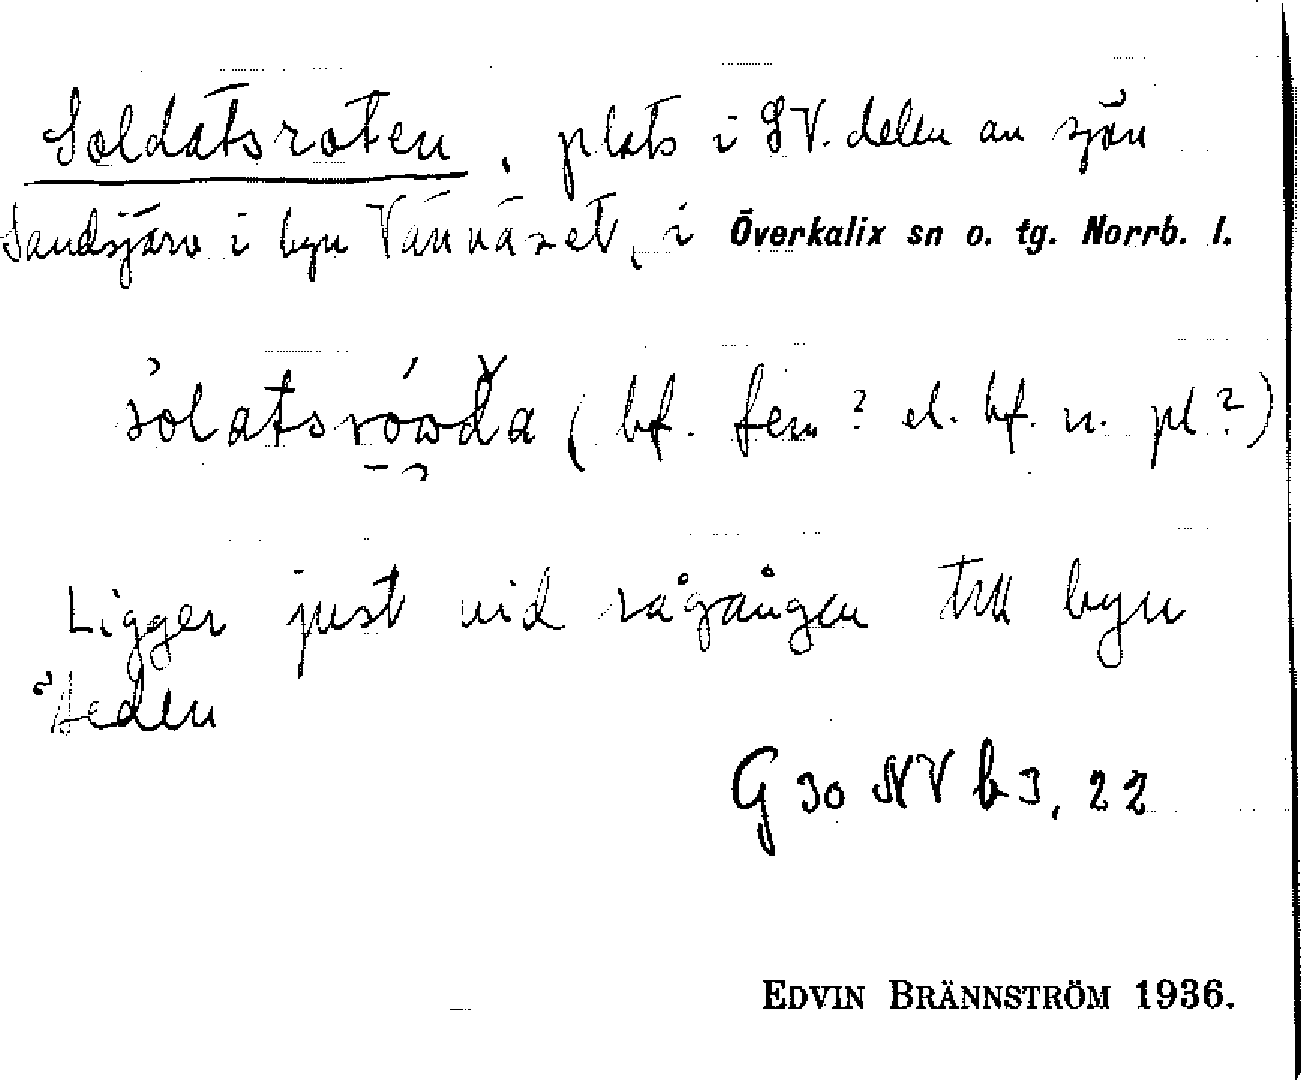 Soldatsroten, plats i SV. delen av sjön
Sandsjärv i byn Vännäset, i Överkalix sn o. tg. Norrb. l.
(bf. fem? el. bf. n. pl?)
Ligger just vid rågången till byn
Heden
G 30 NV b 3, 22
EDVIN BRÄNNSTRÖM 1936.